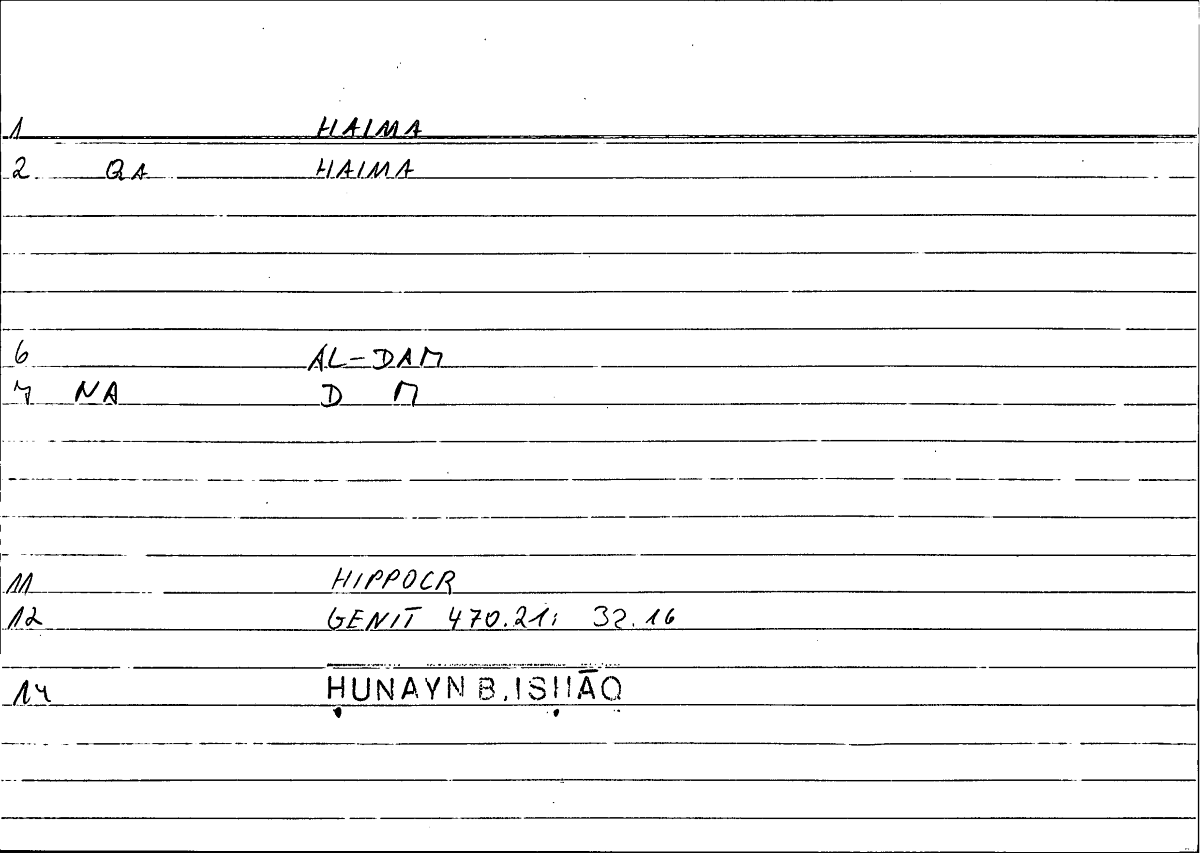 1 HAIMA
2 QA HAIMA
6 AL-DAM
7 NA D M
11 HIPPOCR
12 GENIT 470.21; 32.16
14 ḤUNAYN B. ISḤĀQ